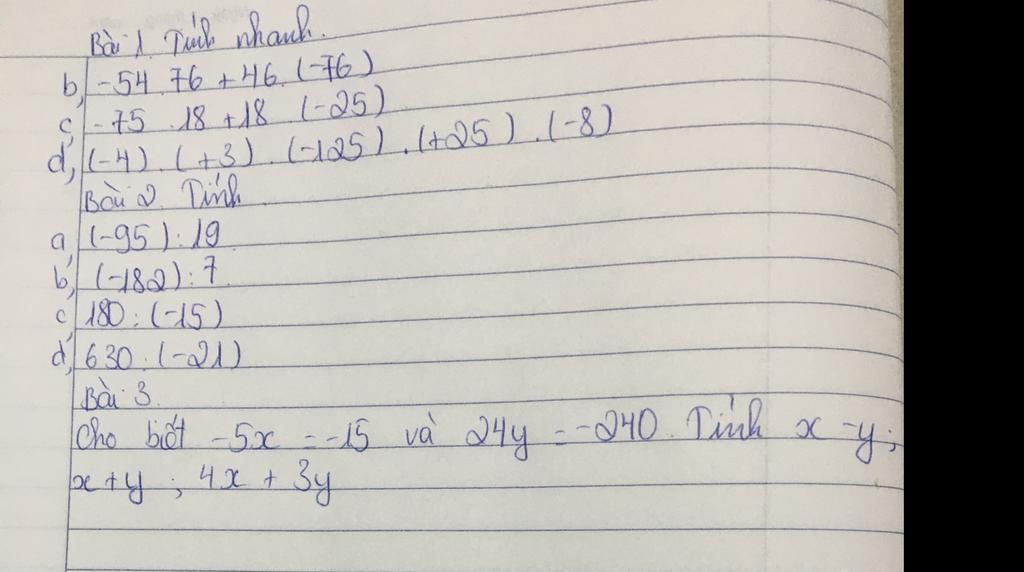 Bài 1. Tính nhanh.
b, -54.76 + 46.(-76)
c, -75.18 + 18 (-25)
d, (-4).(+3).(-125).(+25).(-8)
Bài 2. Tính
a, (-95):19
b, (-182):7
c, 180:(-15)
d, 630:(-21)
Bài 3.
Cho biết -5x = -15 và 24y = -240. Tính x - y;
x + y; 4x + 3y